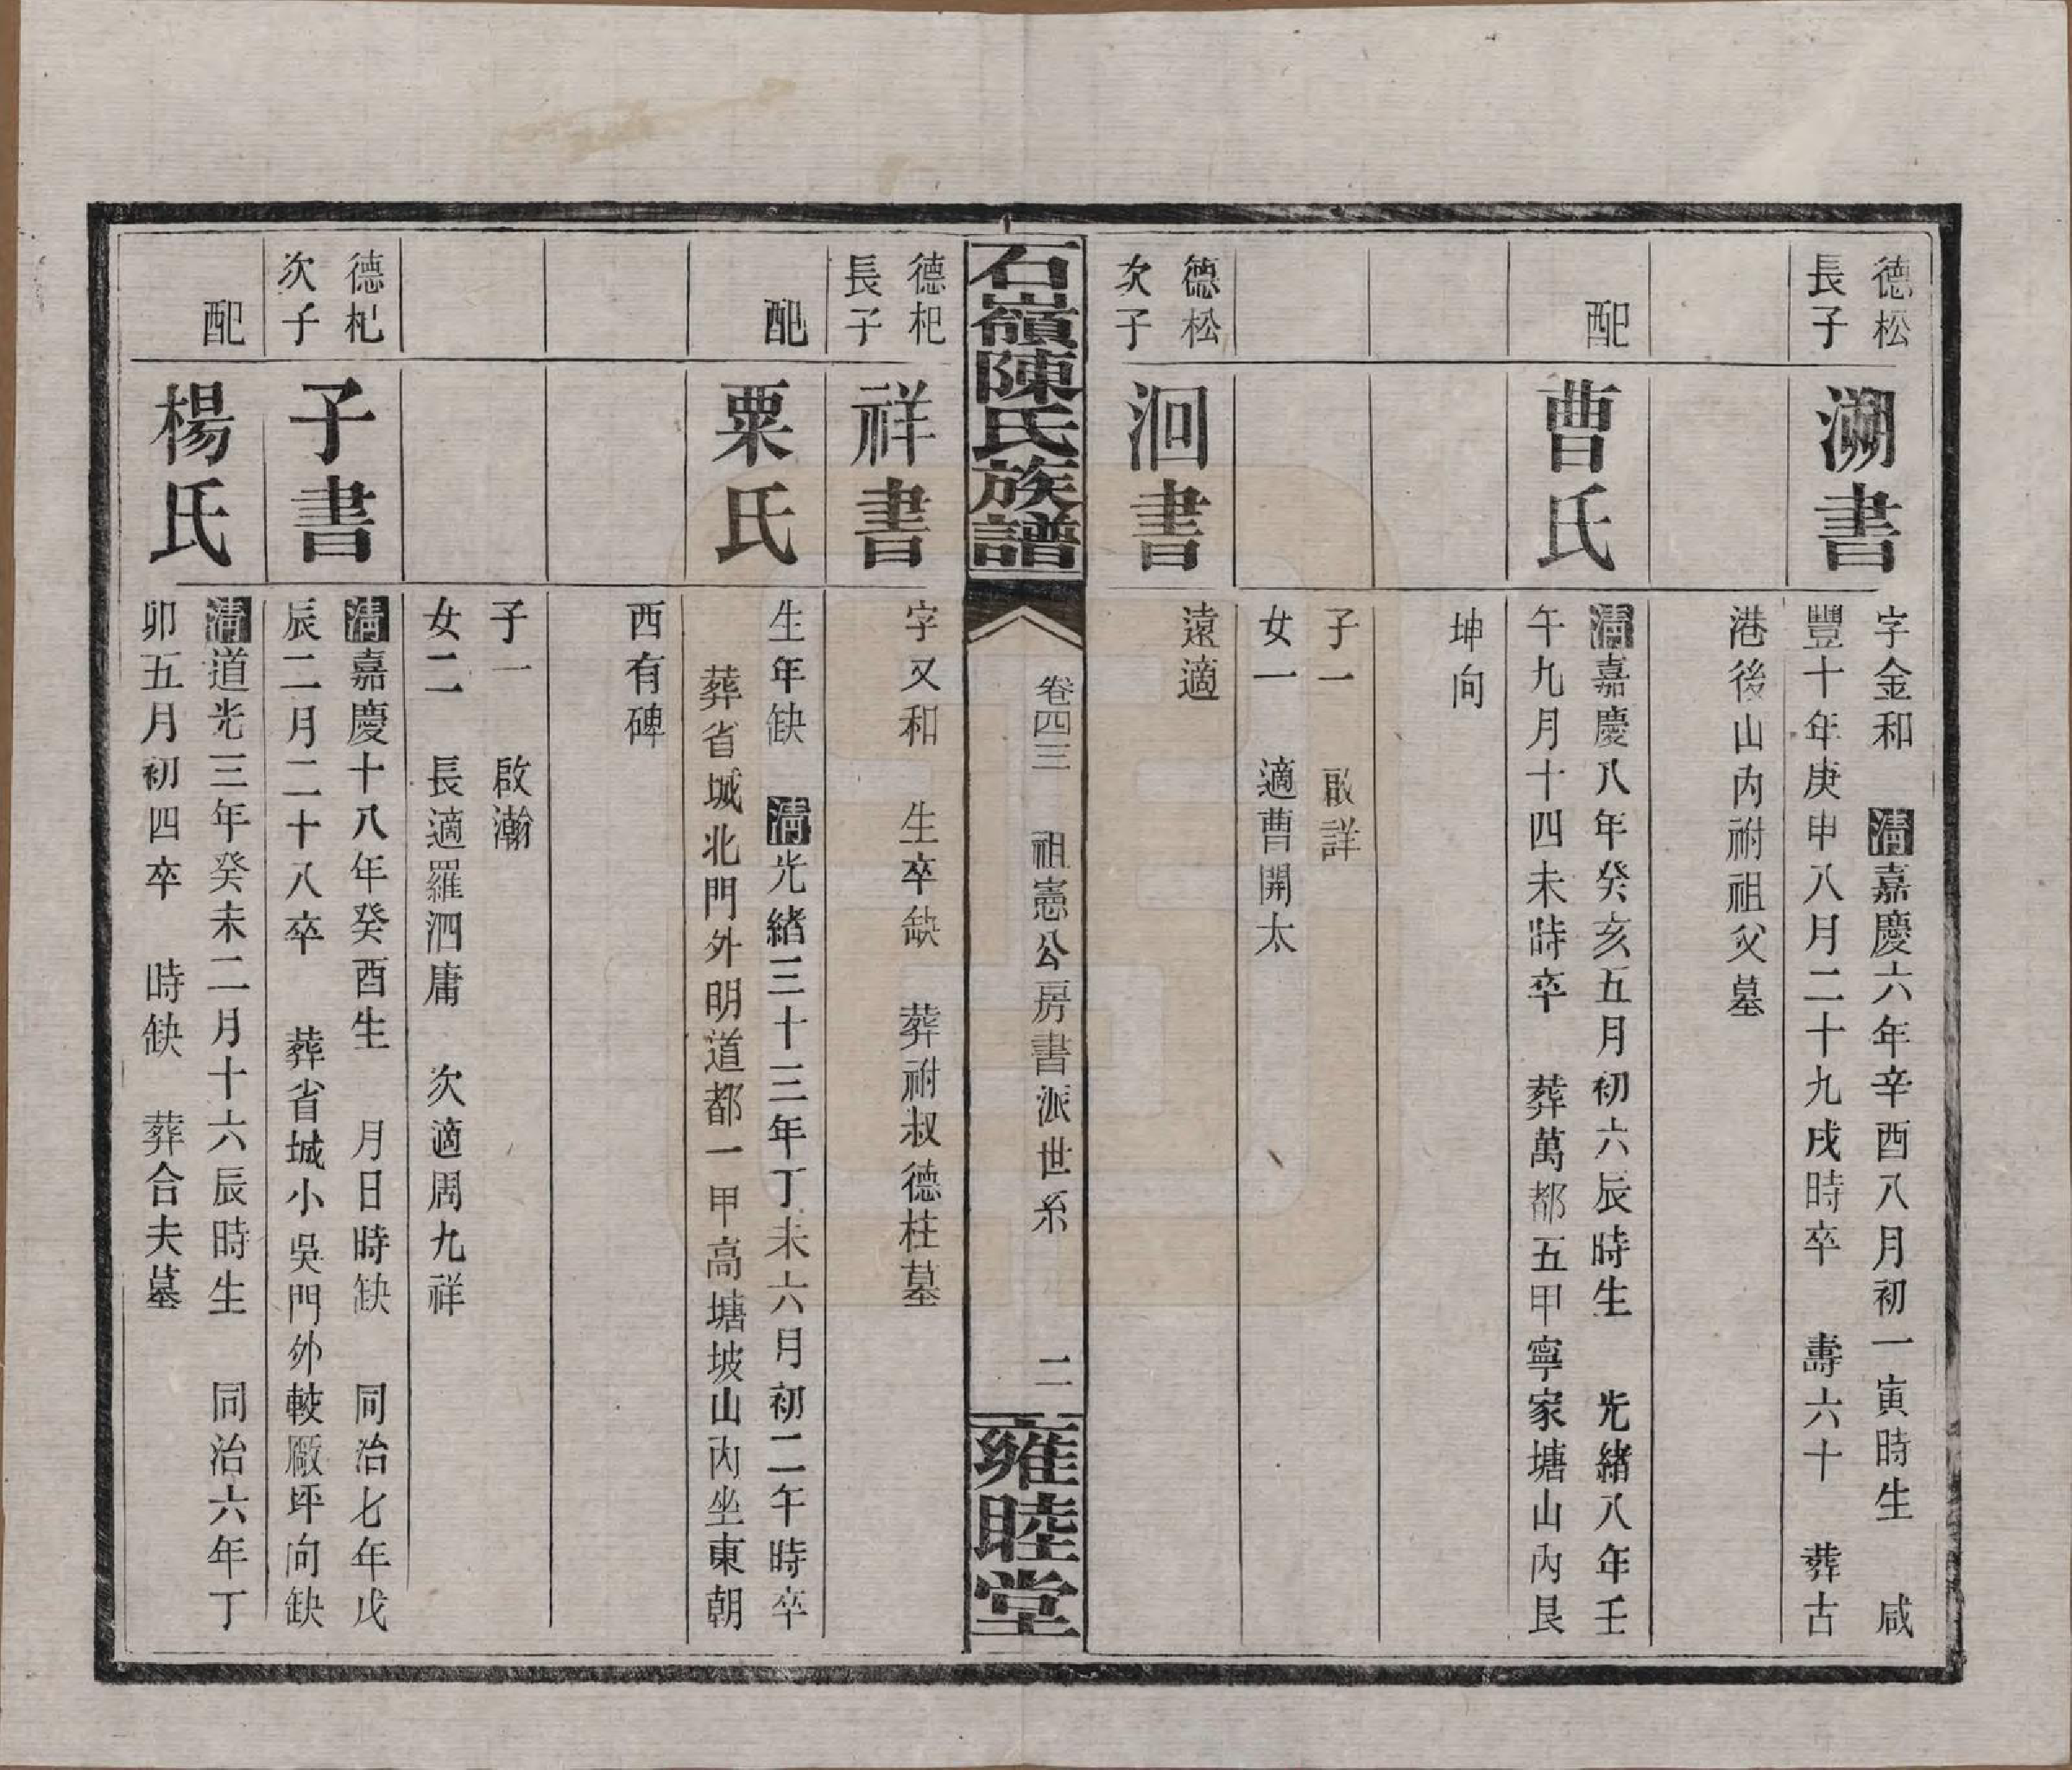 德松
長子
溯書
字金和　清嘉慶六年辛酉八月初一寅時生　咸
豐十年庚申八月二十九戌時卒　壽六十　葬古
港後山內祔祖父墓
配
曹氏
清嘉慶八年癸亥五月初六辰時生　光緒八年壬
午九月十四未時卒　葬萬都五甲寧家塘山內艮
坤向
子一　啟詳
女一　適曹開太
德松
次子
洄書
遠適
石嶺陳氏族譜
卷四三　祖憲公房書派世系　二
雍睦堂
德杞
長子
祥書
字又和　生卒缺　葬祔叔德柱墓
配
粟氏
生年缺　清光緒三十三年丁未六月初二午時卒
葬省城北門外明道都一甲高塘坡山內坐東朝
西有碑
子一　啟瀚
女二　長適羅泗庸　次適周九祥
德杞
次子
子書
清嘉慶十八年癸酉生　月日時缺　同治七年戊
辰二月二十八卒　葬省城小吳門外較廠坪向缺
配
楊氏
清道光三年癸未二月十六辰時生　同治六年丁
卯五月初四卒　時缺　葬合夫墓